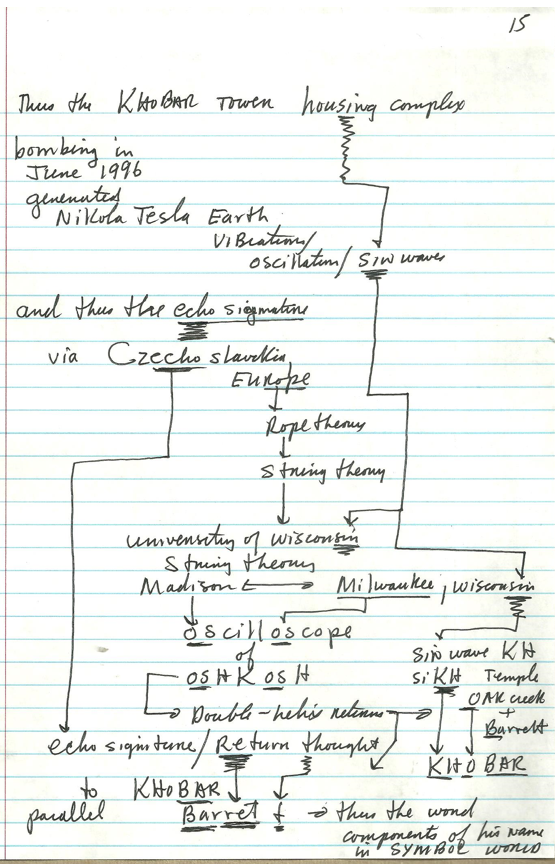 15
Thus the KHOBAR Tower housing complex
bombing in
June 1996
generated
Nikola Tesla Earth
Vibration/
oscillation/ Sin waves
and thus the echo signature
via Czechoslavakia
Europe
Rope theory
String theory
University of Wisconsin
String theory
Madison Milwaukee, Wisconsin
Oscilloscope
of
OSHKOSH
sin wave KH
siKH Temple
OAK creek
+
Barrett
Double-helix returns
echo signiture/ Return thought
KHOBAR
to KHOBAR
parallel
Barret t → thus the word
components of his name
in SYMBOL WORLD